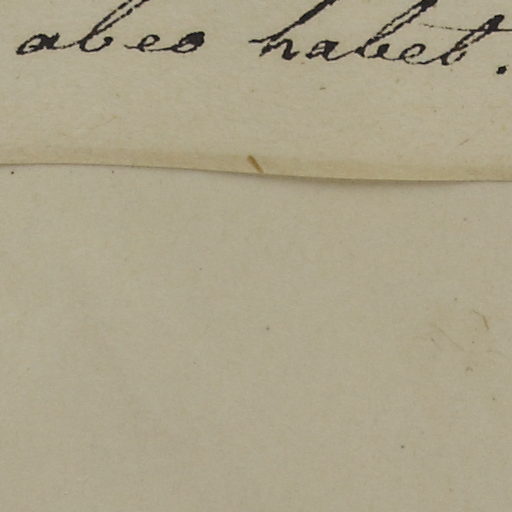 abeo habet.